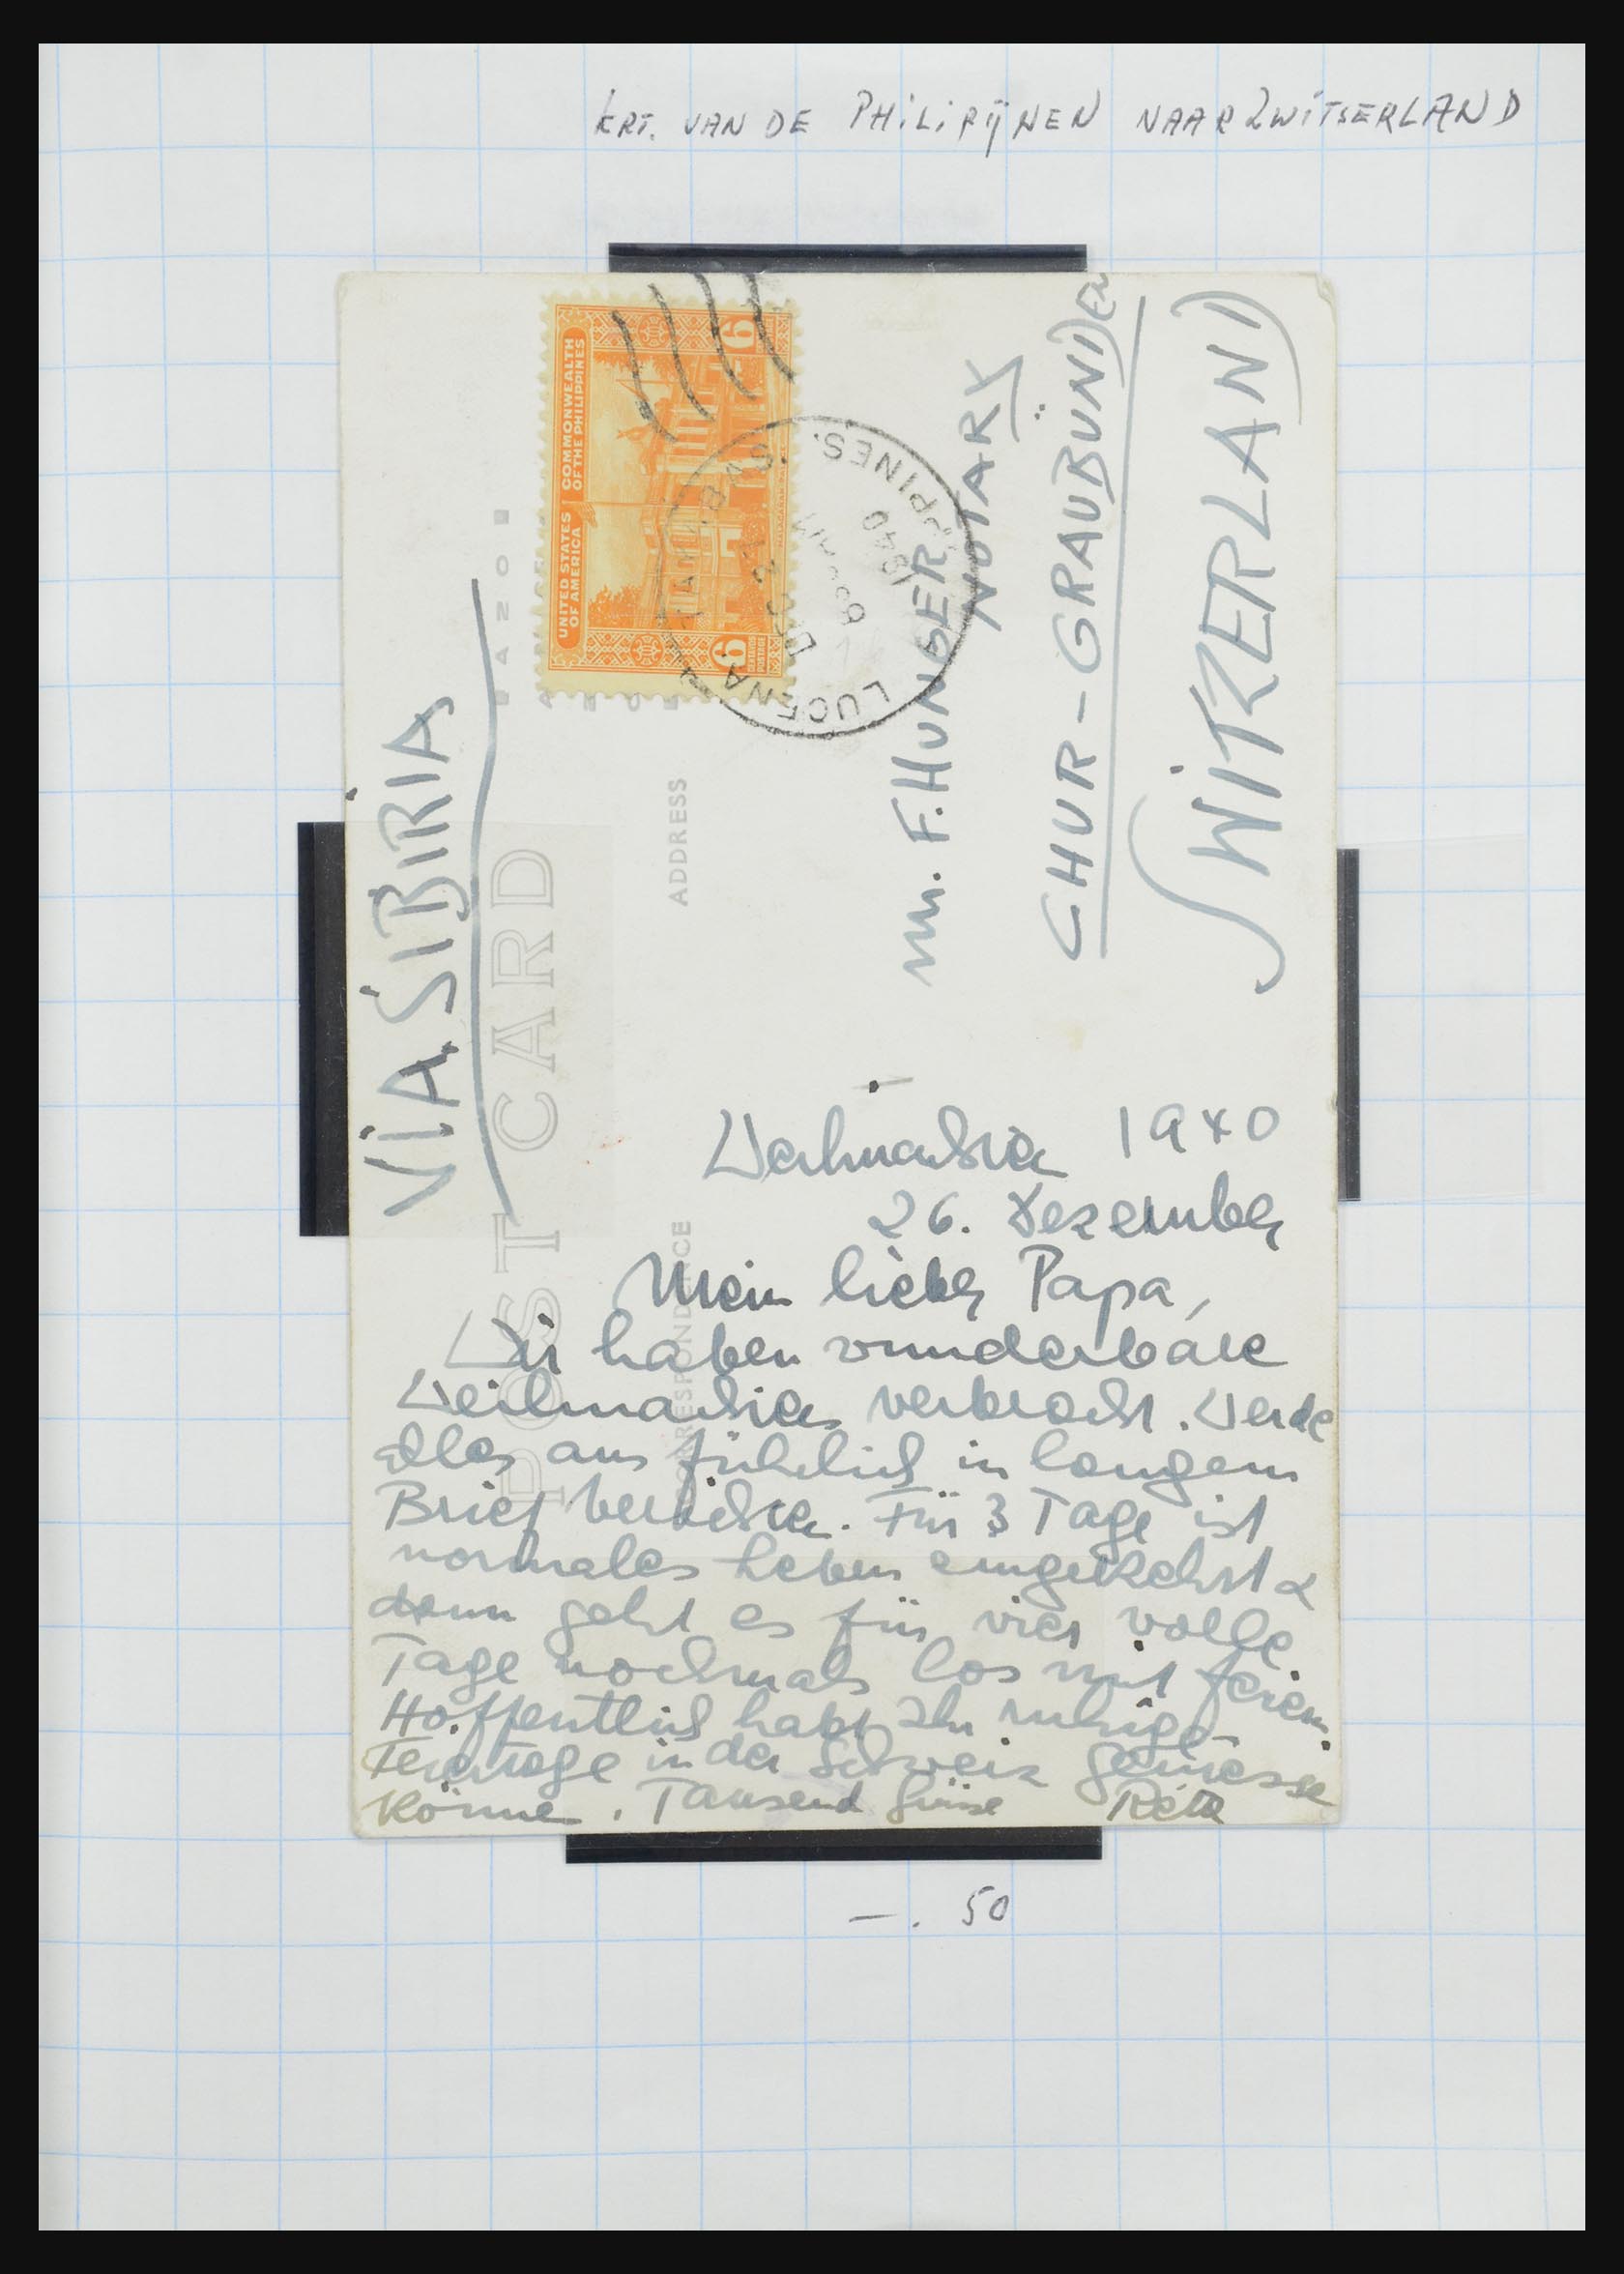 KRT. VAN DE PHILIPIJNEN NAAR ZWITSERLAND
VIA SIBIRIA
POST CARD
ADDRESS
CORRESPONDENCE
AZO
UNITED STATES OF AMERICA
COMMONWEALTH OF THE PHILIPPINES
6
6
LUCENA, TAYABAS, PHILIPPINES.
DEC
8 AM
1940
F. HUNGER
NOTARY
CHUR - GRAUBÜNDEN
SWITZERLAND
Weihnachten 1940
26. Dezember
Mein lieber Papa,
Wir haben wunderbare
Weihnachten verbracht. Werde
alles ausführlich in langem
Brief berichten. Für 3 Tage ist
normales Leben eingekehrt &
dann geht es für vier volle
Tage nochmals los mit Ferien.
Hoffentlich habt Ihr ruhige
Feiertage in der Schweiz geniesse
könne. Tausend Grüsse Reta
-. 50